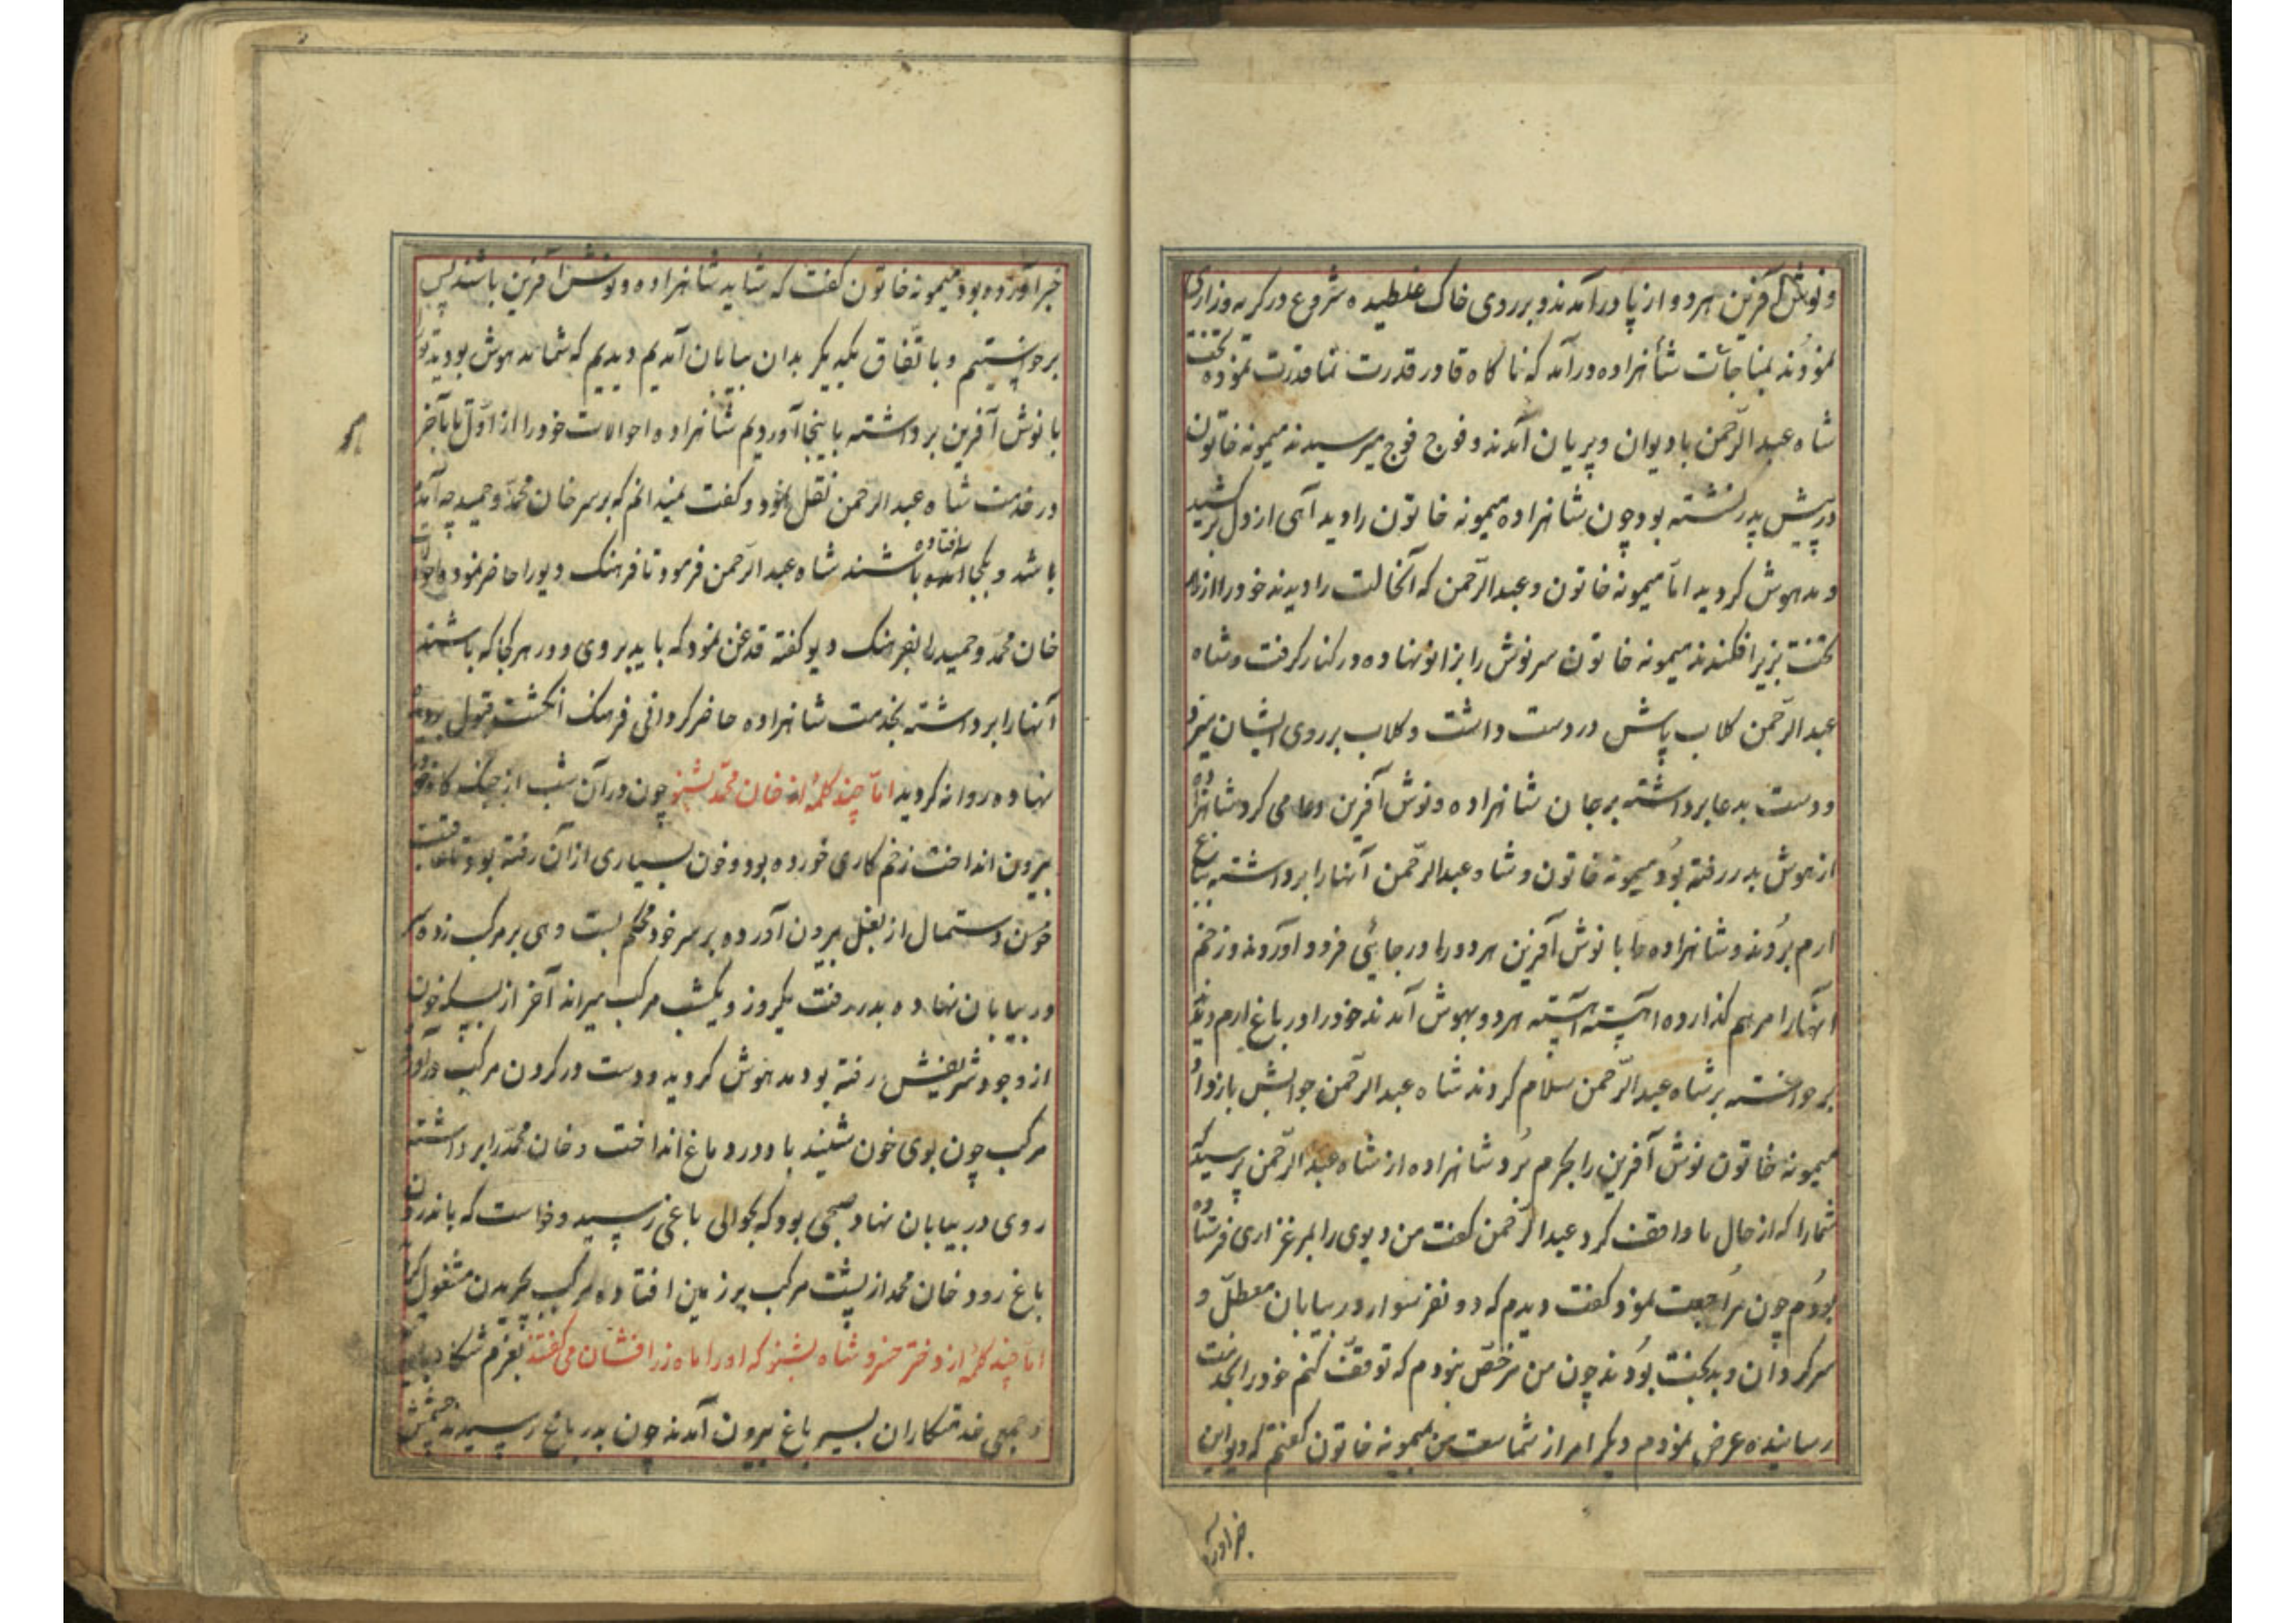 و نوش آفرین هر دو از پا درآمدند و بر روی خاک غلطیده شروع در گریه و زاری
نمودند بمناجات شاهزاده درآمد که ناگاه قادر قدرت نما قدرت نموده تخت
شاه عبدالرحمن با دیوان و پریان آمدند و فوج فوج میرسیدند میمونه خاتون
در پیش پدر نشسته بود چون شاهزاده میمونه خاتون را دید آهی از دل برکشید
و مدهوش گردید اما میمونه خاتون و عبدالرحمن که آنحالت را دیدند خود را از
تخت بزیر افکندند میمونه خاتون سر نوش را بزانو نهاده در کنار گرفت و شاه
عبدالرحمن گلاب پاش در دست داشت و گلاب بر روی ایشان میزد
و دست بدعا برداشته بر جان شاهزاده و نوش آفرین دعا می کرد شاهزاده
از هوش بدر رفته بود میمونه خاتون و شاه عبدالرحمن آنها را برداشته بباغ
ارم بردند و شاهزاده را با نوش آفرین هر دو را در جائی فرود آوردند و زخم
آنها را مرهم گذارده آهسته آهسته هر دو بهوش آمدند خود را در باغ ارم دیدند
برخواسته بر شاه عبدالرحمن سلام کردند شاه عبدالرحمن جوابش باز داد
میمونه خاتون نوش آفرین را بحرم برد شاهزاده از شاه عبدالرحمن پرسید که
شما را که از حال ما واقف کرد عبدالرحمن گفت من دیوی را بمرغزاری فرستاده
بودم چون مراجعت نمود گفت دیدم که دو نفر سوار در بیابان معطل و
سرگردان و بدبخت بودند چون من مرخص نبودم که توقف کنم خود را بخدمت
رسانیده عرض نمودم دیگر امر از شماست من بمیمونه خاتون گفتم که دیو این
خبر آورده
خبر آورده بود میمونه خاتون گفت که شاید شاهزاده و نوش آفرین باشند پس
برخواستیم و باتفاق یکدیگر بدان بیابان آمدیم دیدیم که شما مدهوش بودید تو را
با نوش آفرین برداشته باینجا آوردیم شاهزاده احوالات خود را از اول تا بآخر
در خدمت شاه عبدالرحمن نقل نمود و گفت نمیدانم که بر سر خان محمد و حمید چه آمده
باشد و بکجا افتاده باشند شاه عبدالرحمن فرمود تا فرهنگ دیو را حاضر نموده احوالات
خان محمد و حمید را بفرهنگ دیو گفته قدغن نمود که باید بروی و در هر کجا که باشند
آنها را برداشته بخدمت شاهزاده حاضر گردانی فرهنگ انگشت قبول بردیده
نهاده روانه گردید اما چند کلمه از خان محمد بشنو چون در آن شب از جنگ گاه خود را
بیرون انداخت زخم کاری خورده بود و خون بسیاری از آن رفته بود
دستمال از بغل بیرون آورده بر سر خود محکم بست و هی بر مرکب زده سر
در بیابان نهاده بدر رفت یکروز و یکشب مرکب میراند آخر از بسکه خون
از وجود شریفش رفته بود مدهوش گردید و دست در گردن مرکب درآورد
مرکب چون بوی خون شنید باد در دماغ انداخت و خان محمد را برداشته
روی در بیابان نهاد صبحی بود که بحوالی باغی رسید و خواست که باندرون
باغ رود خان محمد از پشت مرکب بر زمین افتاده مرکب بچریدن مشغول گردید
اما چند کلمه از دختر خسرو شاه بشنو که او را ماه زرافشان می گفتند بعزم شکار
و جمعی خدمتکاران بسیر باغ بیرون آمدند چون بدر باغ رسیدند چشمش